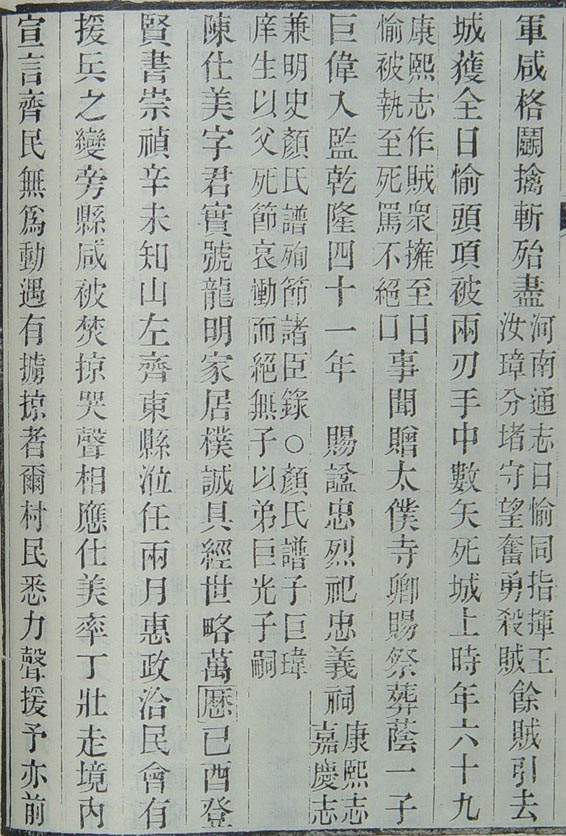 軍咸格鬬擒斬殆盡河南通志日愉同指揮王汝璋分堵守望奮勇殺賊餘賊引去
城獲全日愉頭項被兩刃手中數矢死城上時年六十九
康熙志作賊衆擁至日愉被執至死罵不絕口事聞贈太僕寺卿賜祭葬蔭一子
巨偉入監乾隆四十一年賜諡忠烈祀忠義祠康熙志嘉慶志
兼明史顏氏譜殉節諸臣錄○顏氏譜子巨瑋庠生以父死節哀慟而絕無子以弟巨光子嗣
陳仕美字君實號龍明家居樸誠具經世略萬曆己酉登
賢書崇禎辛未知山左齊東縣涖任兩月惠政洽民會有
援兵之變旁縣咸被焚掠哭聲相應仕美率丁壯走境內
宣言齊民無爲動遇有擄掠者爾村民悉力聲援予亦前